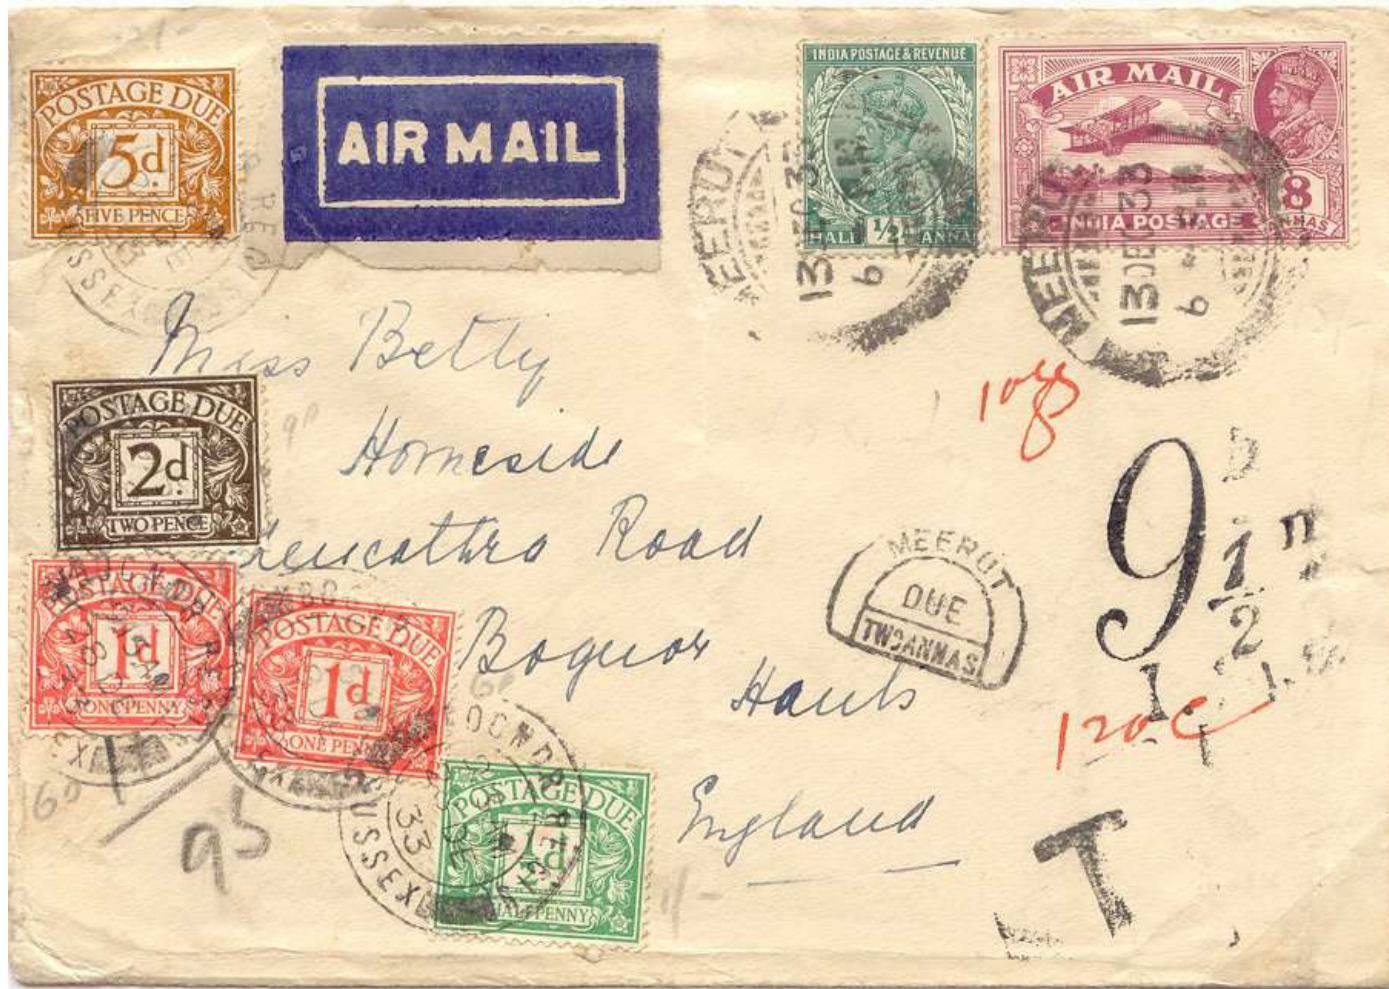 POSTAGE DUE
5d.
FIVE PENCE
AIR MAIL
INDIA POSTAGE & REVENUE
HALF 1/2 ANNA
AIR MAIL
INDIA POSTAGE
8
ANNAS
MEERUT
13 DEC 33
MEERUT
13 DEC 33
6
Miss Betty
Homeside
Road
Bognor
Hants
England
POSTAGE DUE
2d.
TWO PENCE
POSTAGE DUE
1d
ONE PENNY
POSTAGE DUE
1d
ONE PENNY
POSTAGE DUE
½d
HALFPENNY
BOGNOR REGIS
SUSSEX
33
MEERUT
DUE
TWO ANNAS
9 1/2
120c
T
95